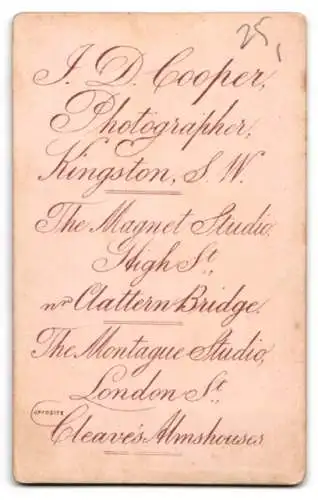 25,
J. D. Cooper,
Photographer,
Kingston, S. W.
The Magnet Studio,
High St.,
nr Clattern Bridge.
The Montague Studio,
London St.,
OPPOSITE
Cleave's Almshouses